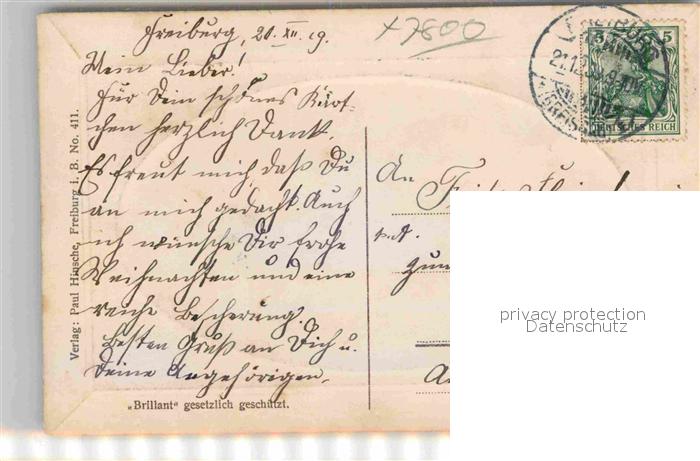 +7800
Freiburg, 20. XII. 9.
Mein Lieber!
Für Dein schönes Kärt-
chen herzlich Dank.
Es freut mich, daß Du
an mich gedacht. Auch
ich wünsche Dir frohe
Weihnachten und eine
reiche Bescherung.
Besten Gruß an Dich u.
Deine Angehörigen.
An
Fritz
Verlag: Paul Hinsche, Freiburg i. B. No. 411.
„Brillant“ gesetzlich geschützt.
FREIBURG
21.12.
(BREISGAU)
5 5
DEUTSCHES REICH
privacy protection
Datenschutz